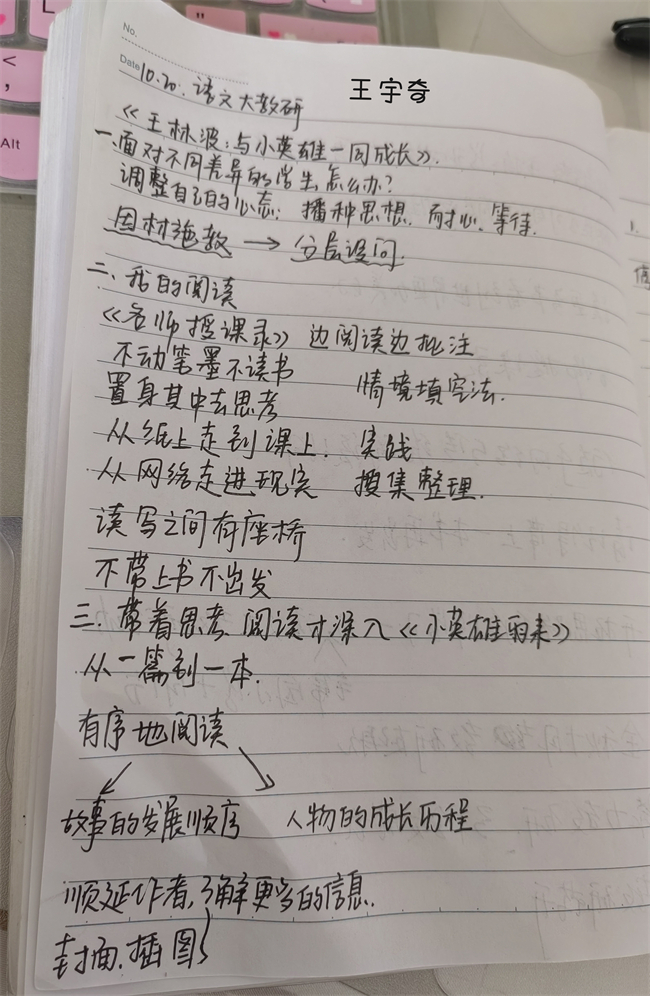 No.
Date 10.20. 语文大教研
王宇奇
《王林波：与小英雄一同成长》.
一.面对不同差异的学生怎么办？
调整自己的心态：播种思想，耐心、等待.
因材施教 → 分层设问.
二、我的阅读
《名师授课录》 边阅读边批注
不动笔墨不读书
置身其中去思考 情境填空法.
从纸上走到课上. 实践
从网络走进现实 搜集整理.
读写之间有座桥
不带上书不出发
三.带着思考、阅读才深入《小英雄雨来》
从一篇到一本.
有序地阅读
故事的发展顺序 人物的成长历程
顺延作者,了解更多的信息.
封面、插图
Alt